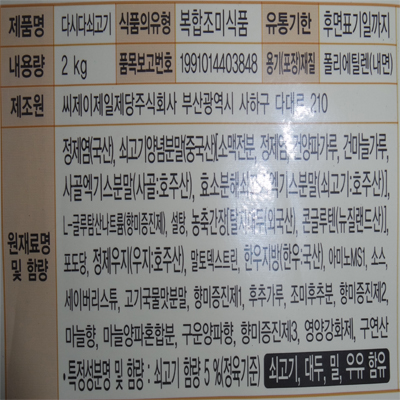 제품명 다시다쇠고기 식품의유형 복합조미식품 유통기한 후면표기일까지
내용량 2 kg 품목보고번호 1991014403848 용기(포장)재질 폴리에틸렌(내면)
제조원 씨제이제일제당주식회사 부산광역시 사하구 다대로 210
원재료명 및 함량
정제염(국산), 쇠고기양념분말{중국산[소맥전분, 정제염, 건양파가루, 건마늘가루,
사골엑기스분말(사골:호주산), 효소분해쇠고기엑기스분말(쇠고기:호주산)],
L-글루탐산나트륨(향미증진제), 설탕, 농축간장[탈지대두(외국산), 콘글루텐(뉴질랜드산)],
포도당, 정제우지(우지:호주산), 말토덱스트린, 한우지방(한우:국산), 아미노MS1, 소스,
세이버리스튜, 고기국물맛분말, 향미증진제1, 후추가루, 조미후추분, 향미증진제2,
마늘향, 마늘양파혼합분, 구운양파향, 향미증진제3, 영양강화제, 구연산
• 특정성분명 및 함량 : 쇠고기 함량 5 %(정육기준) 쇠고기, 대두, 밀, 우유 함유